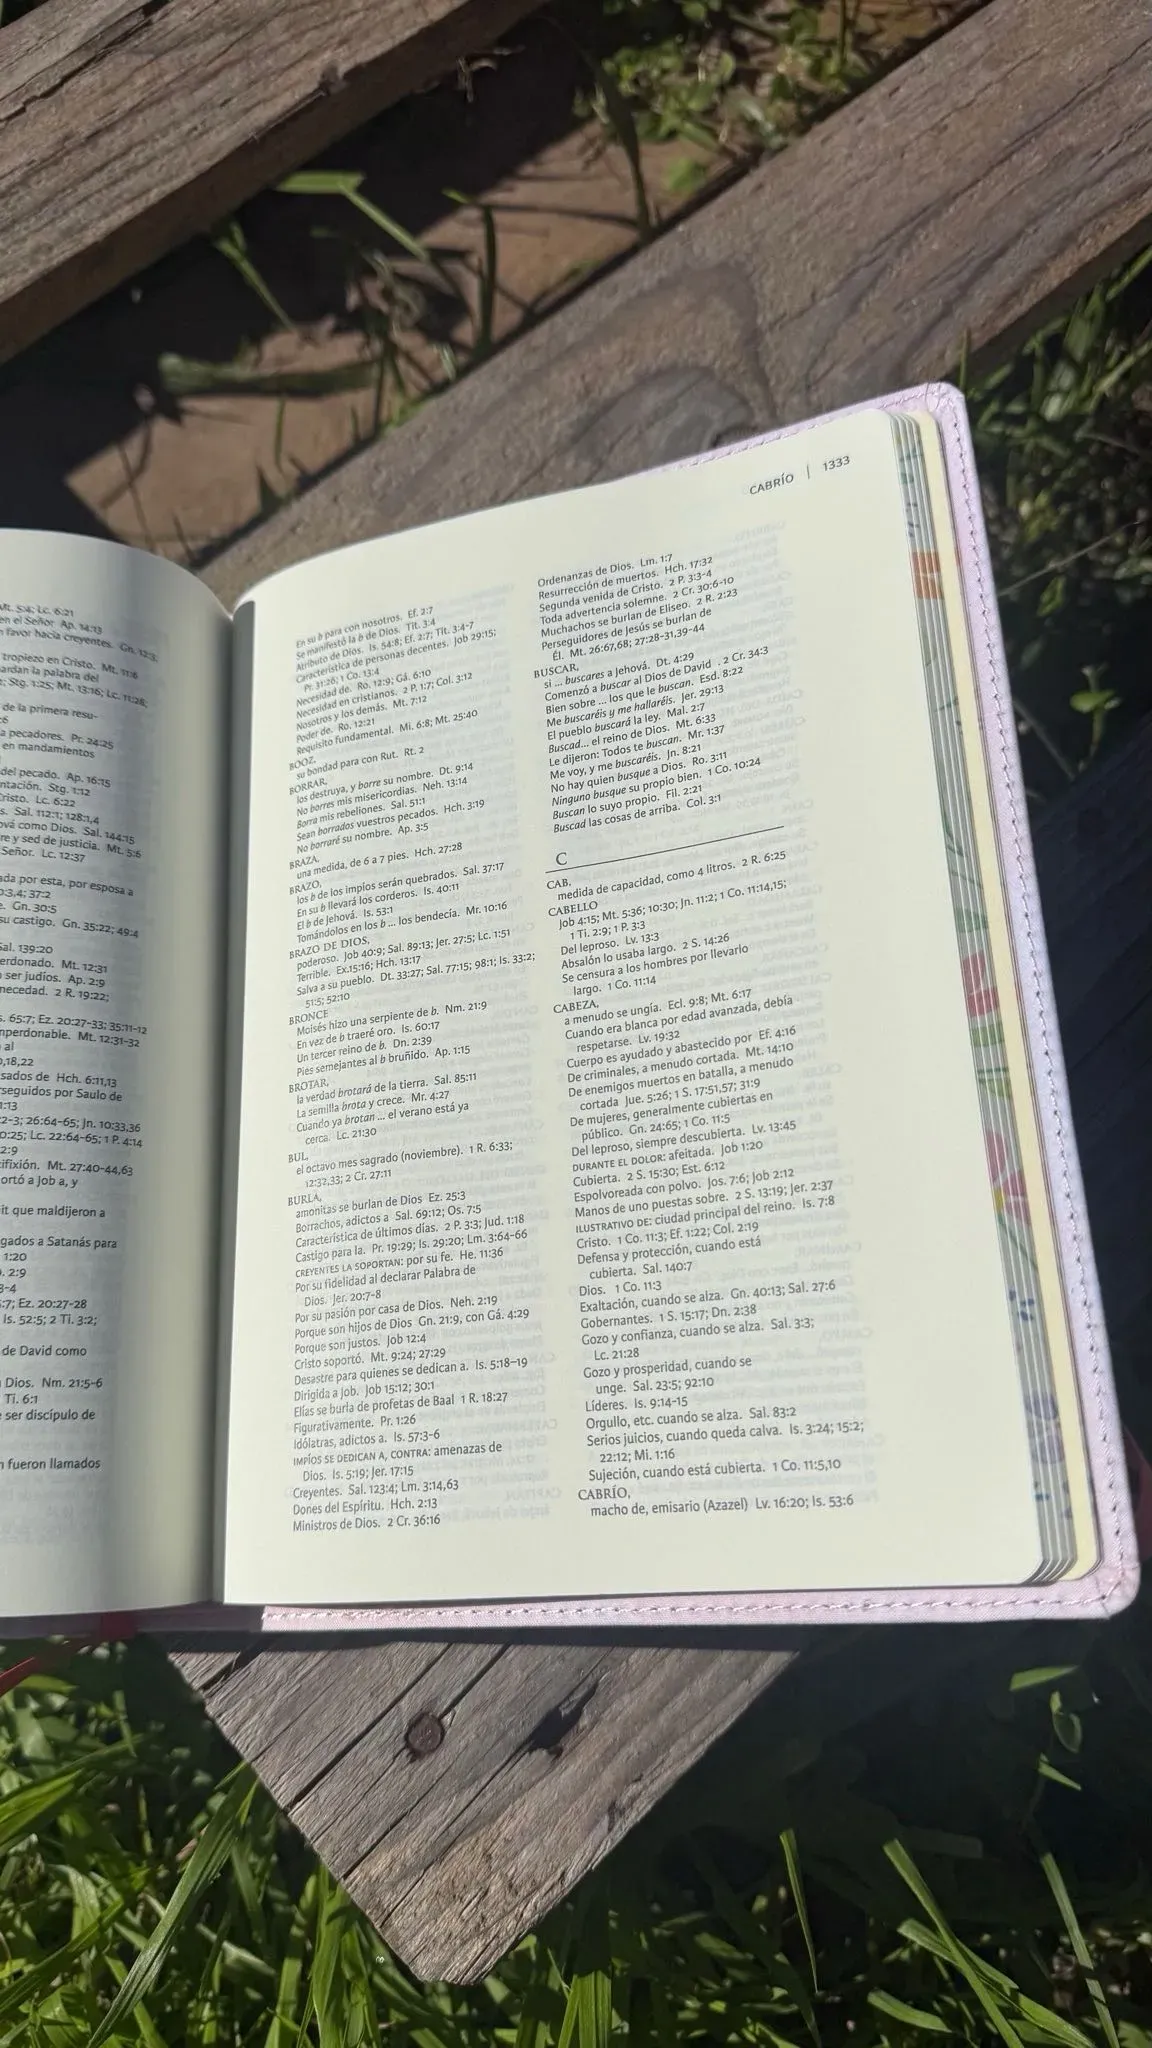 Mt. 5:4; Lc. 6:21
en el Señor Ap. 14:13
favor hacia creyentes. Gn. 12:3;
tropiezo en Cristo. Mt. 11:6
ardan la palabra del
Stg. 1:25; Mt. 13:16; Lc. 11:28;
de la primera resu-
a pecadores. Pr. 24:25
en mandamientos
del pecado. Ap. 16:15
ntación. Stg. 1:12
Cristo. Lc. 6:22
s. Sal. 112:1; 128:1,4
ová como Dios. Sal. 144:15
re y sed de justicia. Mt. 5:6
Señor. Lc. 12:37
ada por esta, por esposa a
0:3,4; 37:2
e. Gn. 30:5
su castigo. Gn. 35:22; 49:4
Sal. 139:20
erdonado. Mt. 12:31
ser judíos. Ap. 2:9
necedad. 2 R. 19:22;
s. 65:7; Ez. 20:27-33; 35:11-12
mperdonable. Mt. 12:31-32
al
0,18,22
sados de Hch. 6:11,13
rseguidos por Saulo de
1:13
2-3; 26:64-65; Jn. 10:33,36
0:25; Lc. 22:64-65; 1 P. 4:14
2:9
ifixión. Mt. 27:40-44,63
ortó a Job a, y
it que maldijeron a
gados a Satanás para
1:20
). 2:9
3-4
5:7; Ez. 20:27-28
Is. 52:5; 2 Ti. 3:2;
de David como
Dios. Nm. 21:5-6
Ti. 6:1
e ser discípulo de
n fueron llamados
CABRÍO | 1333
En su b para con nosotros. Ef. 2:7
Se manifestó la b de Dios. Tit. 3:4
Atributo de Dios. Is. 54:8; Ef. 2:7; Tit. 3:4-7
Característica de personas decentes. Job 29:15;
Pr. 31:26; 1 Co. 13:4
Necesidad de. Ro. 12:9; Gá. 6:10
Necesidad en cristianos. 2 P. 1:7; Col. 3:12
Nosotros y los demás. Mt. 7:12
Poder de. Ro. 12:21
Requisito fundamental. Mi. 6:8; Mt. 25:40
BOOZ,
su bondad para con Rut. Rt. 2
BORRAR,
los destruya, y borre su nombre. Dt. 9:14
No borres mis misericordias. Neh. 13:14
Borra mis rebeliones. Sal. 51:1
Sean borrados vuestros pecados. Hch. 3:19
No borraré su nombre. Ap. 3:5
BRAZA,
una medida, de 6 a 7 pies. Hch. 27:28
BRAZO,
los b de los impíos serán quebrados. Sal. 37:17
En su b llevará los corderos. Is. 40:11
El b de Jehová. Is. 53:1
Tomándolos en los b ... los bendecía. Mr. 10:16
BRAZO DE DIOS,
poderoso. Job 40:9; Sal. 89:13; Jer. 27:5; Lc. 1:51
Terrible. Ex.15:16; Hch. 13:17
Salva a su pueblo. Dt. 33:27; Sal. 77:15; 98:1; Is. 33:2;
51:5; 52:10
BRONCE
Moisés hizo una serpiente de b. Nm. 21:9
En vez de b traeré oro. Is. 60:17
Un tercer reino de b. Dn. 2:39
Pies semejantes al b bruñido. Ap. 1:15
BROTAR,
la verdad brotará de la tierra. Sal. 85:11
La semilla brota y crece. Mr. 4:27
Cuando ya brotan ... el verano está ya
cerca. Lc. 21:30
BUL,
el octavo mes sagrado (noviembre). 1 R. 6:33;
12:32,33; 2 Cr. 27:11
BURLA,
amonitas se burlan de Dios Ez. 25:3
Borrachos, adictos a Sal. 69:12; Os. 7:5
Característica de últimos días. 2 P. 3:3; Jud. 1:18
Castigo para la. Pr. 19:29; Is. 29:20; Lm. 3:64-66
CREYENTES LA SOPORTAN: por su fe. He. 11:36
Por su fidelidad al declarar Palabra de
Dios. Jer. 20:7-8
Por su pasión por casa de Dios. Neh. 2:19
Porque son hijos de Dios Gn. 21:9, con Gá. 4:29
Porque son justos. Job 12:4
Cristo soportó. Mt. 9:24; 27:29
Desastre para quienes se dedican a. Is. 5:18-19
Dirigida a job. Job 15:12; 30:1
Elías se burla de profetas de Baal 1 R. 18:27
Figurativamente. Pr. 1:26
Idólatras, adictos a. Is. 57:3-6
IMPÍOS SE DEDICAN A, CONTRA: amenazas de
Dios. Is. 5:19; Jer. 17:15
Creyentes. Sal. 123:4; Lm. 3:14,63
Dones del Espíritu. Hch. 2:13
Ministros de Dios. 2 Cr. 36:16
Ordenanzas de Dios. Lm. 1:7
Resurrección de muertos. Hch. 17:32
Segunda venida de Cristo. 2 P. 3:3-4
Toda advertencia solemne. 2 Cr. 30:6-10
Muchachos se burlan de Eliseo. 2 R. 2:23
Perseguidores de Jesús se burlan de
Él. Mt. 26:67,68; 27:28-31,39-44
BUSCAR,
si ... buscares a Jehová. Dt. 4:29
Comenzó a buscar al Dios de David . 2 Cr. 34:3
Bien sobre ... los que le buscan. Esd. 8:22
Me buscaréis y me hallaréis. Jer. 29:13
El pueblo buscará la ley. Mal. 2:7
Buscad... el reino de Dios. Mt. 6:33
Le dijeron: Todos te buscan. Mr. 1:37
Me voy, y me buscaréis. Jn. 8:21
No hay quien busque a Dios. Ro. 3:11
Ninguno busque su propio bien. 1 Co. 10:24
Buscan lo suyo propio. Fil. 2:21
Buscad las cosas de arriba. Col. 3:1
C
CAB,
medida de capacidad, como 4 litros. 2 R. 6:25
CABELLO
Job 4:15; Mt. 5:36; 10:30; Jn. 11:2; 1 Co. 11:14,15;
1 Ti. 2:9; 1 P. 3:3
Del leproso. Lv. 13:3
Absalón lo usaba largo. 2 S. 14:26
Se censura a los hombres por llevarlo
largo. 1 Co. 11:14
CABEZA,
a menudo se ungía. Ecl. 9:8; Mt. 6:17
Cuando era blanca por edad avanzada, debía
respetarse. Lv. 19:32
Cuerpo es ayudado y abastecido por Ef. 4:16
De criminales, a menudo cortada. Mt. 14:10
De enemigos muertos en batalla, a menudo
cortada Jue. 5:26; 1 S. 17:51,57; 31:9
De mujeres, generalmente cubiertas en
público. Gn. 24:65; 1 Co. 11:5
Del leproso, siempre descubierta. Lv. 13:45
DURANTE EL DOLOR: afeitada. Job 1:20
Cubierta. 2 S. 15:30; Est. 6:12
Espolvoreada con polvo. Jos. 7:6; Job 2:12
Manos de uno puestas sobre. 2 S. 13:19; Jer. 2:37
ILUSTRATIVO DE: ciudad principal del reino. Is. 7:8
Cristo. 1 Co. 11:3; Ef. 1:22; Col. 2:19
Defensa y protección, cuando está
cubierta. Sal. 140:7
Dios. 1 Co. 11:3
Exaltación, cuando se alza. Gn. 40:13; Sal. 27:6
Gobernantes. 1 S. 15:17; Dn. 2:38
Gozo y confianza, cuando se alza. Sal. 3:3;
Lc. 21:28
Gozo y prosperidad, cuando se
unge. Sal. 23:5; 92:10
Líderes. Is. 9:14-15
Orgullo, etc. cuando se alza. Sal. 83:2
Serios juicios, cuando queda calva. Is. 3:24; 15:2;
22:12; Mi. 1:16
Sujeción, cuando está cubierta. 1 Co. 11:5,10
CABRÍO,
macho de, emisario (Azazel) Lv. 16:20; Is. 53:6